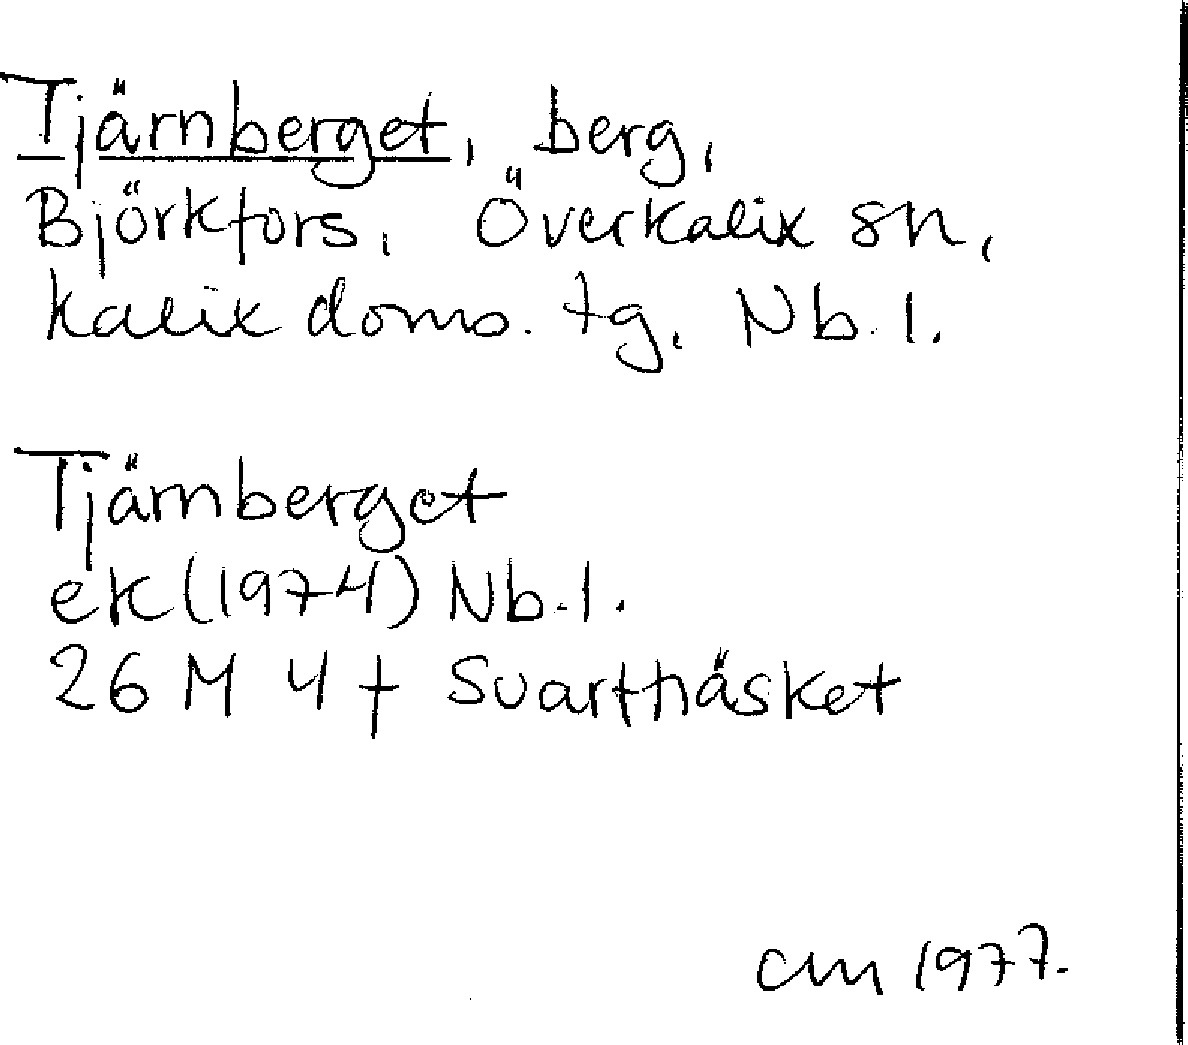 Tjärnberget, berg,
Björkfors, Överkalix sn,
Kalix doms. tg, Nb. l.
Tjärnberget
ek (1974) Nb. l.
26 M 4 f Svartträsket
CM 1977.